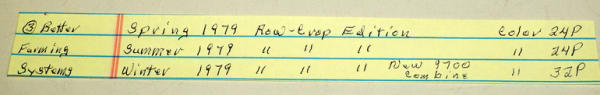 ③ Better Spring 1979 Row-Crop Edition Color 24P
Farming Summer 1979 " " " " 24P
Systems Winter 1979 " " " New 9700 Combine " 32P